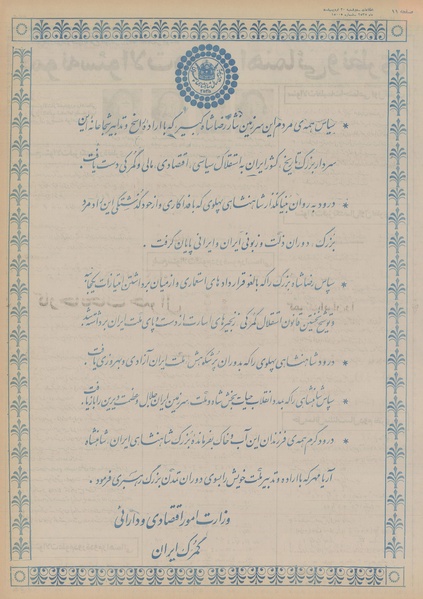 صفحه ۶۶
سپاس همه‌ی مردم این سرزمین نثار رضا شاه کبیر که با اراده راسخ و تدبیر شجاعانه این
سردار بزرگ تاریخ، کشور ایران به استقلال سیاسی، اقتصادی، مالی و گمرکی دست یافت.
درود به روان بنیانگذار شاهنشاهی پهلوی که با فداکاری و از خود گذشتگی این ابرمرد
بزرگ، دوران ذلت و زبونی ایران و ایرانی پایان گرفت.
سپاس رضا شاه بزرگ را که با لغو قراردادهای استعماری و از میان برداشتن امتیازات یکجانبه
و توشیح نخستین قانون استقلال گمرکی، زنجیرهای اسارت از دست و پای ملت ایران برداشته شد.
درود شاهنشاهی پهلوی را که به دوران پرشکوهش، ملت ایران آزادی و بهروزی یافت.
سپاس شاهنشاهی را که به مدد انقلاب حیات‌بخش شاه و ملت، سرزمین ایران جلال و عظمت دیرین را باز یافت.
درود گرم همه‌ی فرزندان این آب و خاک به فرمانده بزرگ شاهنشاهی ایران، شاهنشاه
آریامهر که با اراده و تدبیر ملت خویش را بسوی دوران تمدن بزرگ رهبری فرمود.
وزارت امور اقتصادی و دارائی
گمرک ایران